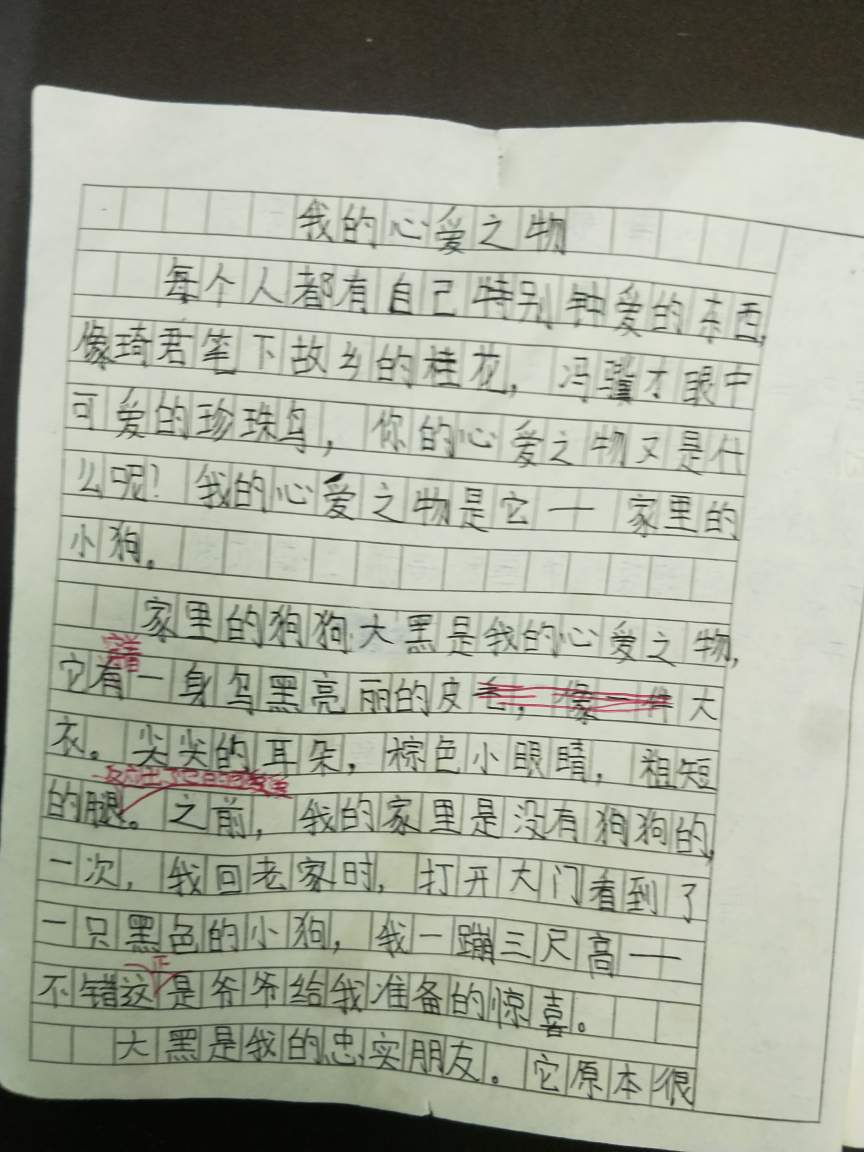 我的心爱之物
每个人都有自己特别钟爱的东西,
像琦君笔下故乡的桂花，冯骥才眼中
可爱的珍珠鸟，你的心爱之物又是什
么呢？我的心爱之物是它一 家里的
小狗。
家里的狗狗大黑是我的心爱之物,
穿着
它有一身乌黑亮丽的皮毛，像一件大
衣。尖尖的耳朵，棕色小眼睛，粗短
的腿。之前，我的家里是没有狗狗的,
一次，我回老家时，打开大门看到了
一只黑色的小狗，我一蹦三尺高——
正
不错这是爷爷给我准备的惊喜。
大黑是我的忠实朋友。它原本很